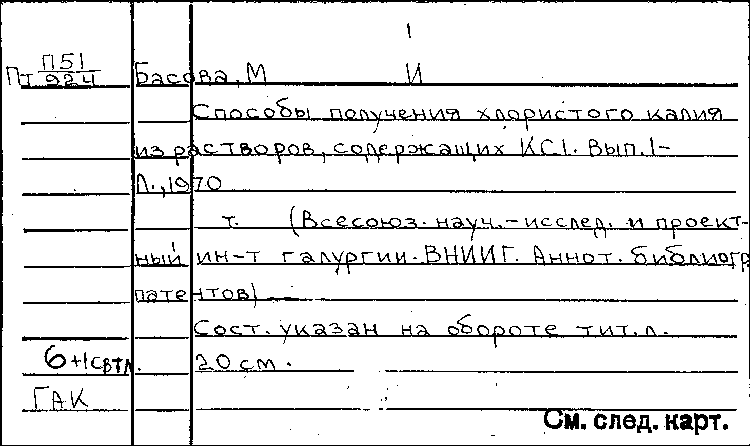 1
Пт П51/924 Басова, М И
Способы получения хлористого калия
из растворов, содержащих KCl. Вып. 1-
Л., 1970
т. (Всесоюз. науч.-исслед. и проект-
ный ин-т галургии. ВНИИГ. Аннот. библиогр
патентов)
Сост. указан на обороте тит. л.
6+1свтл. 20 см.
ГАК
См. след. карт.